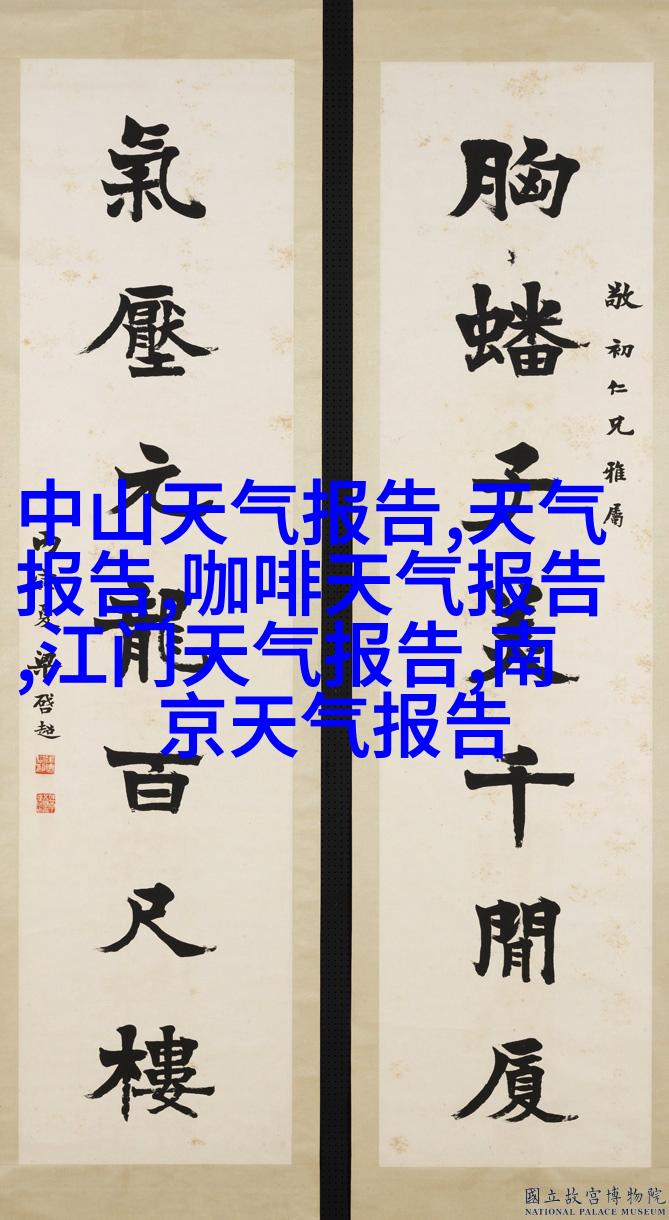 敬初仁兄雅屬
胸蟠子美千閒厦
氣壓元龍百尺樓
夏 梁啓超
中山天气报告,天气
报告,咖啡天气报告
,江门天气报告,南
京天气报告
國立故宮博物院
NATIONAL PALACE MUSEUM